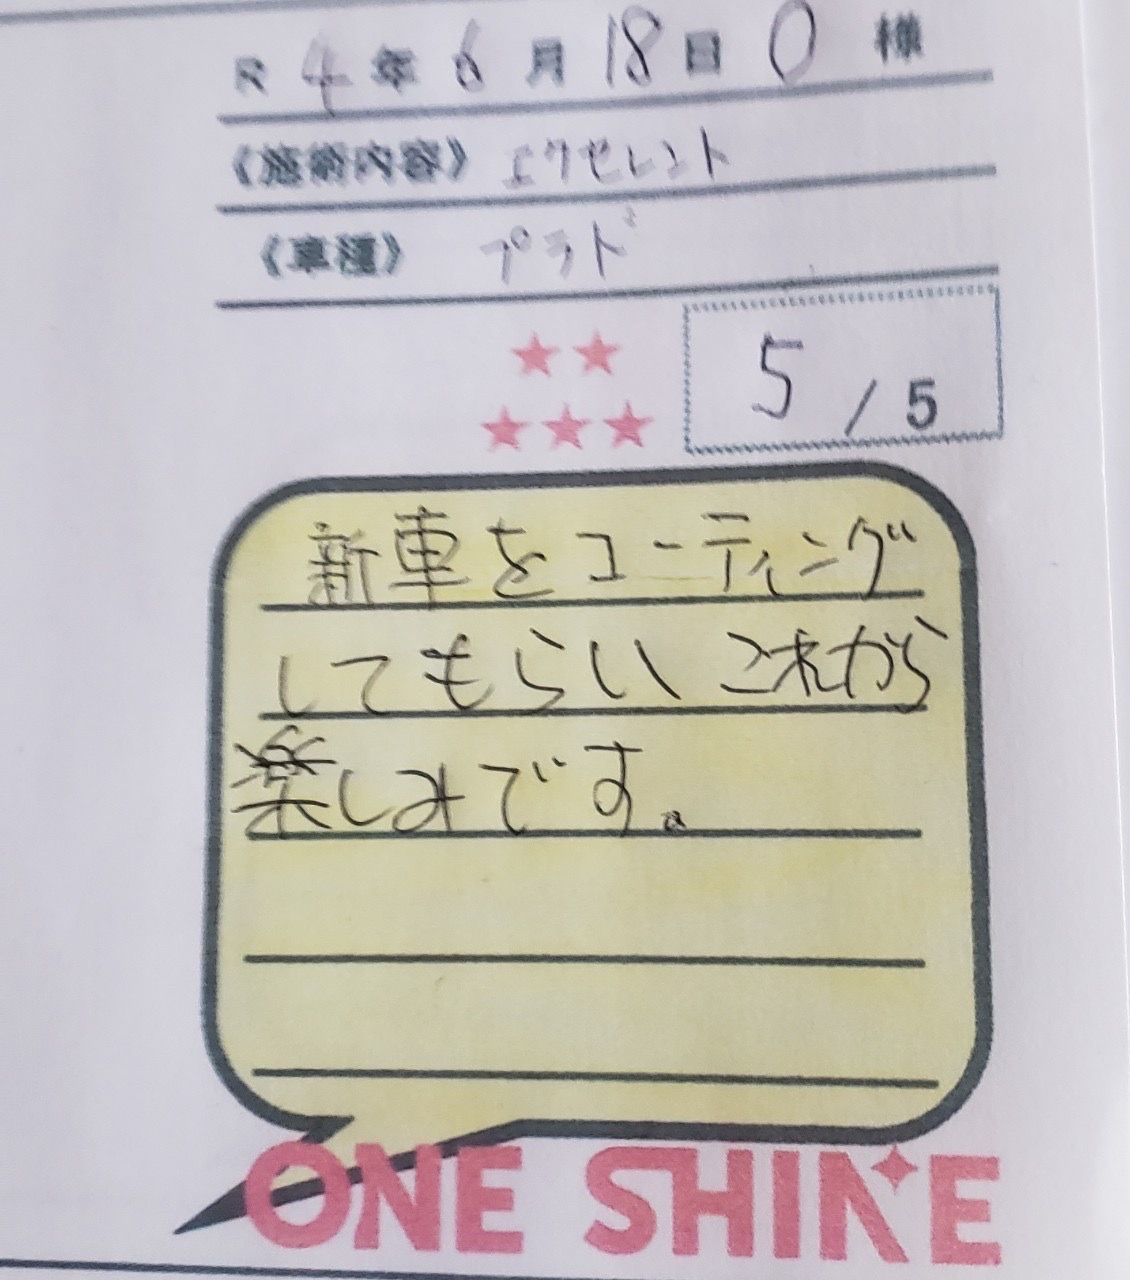 R 4 年 6 月 18 日 O 様
《施術内容》 エクセレント
《車種》 プラド
5 / 5
新車をコーティング
してもらい これから
楽しみです。
ONE SHINE